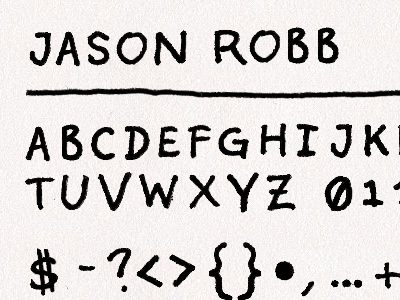 JASON ROBB
ABCDEFGHIJK
TUVWXYZ 01
$ -?<>{}•,...+